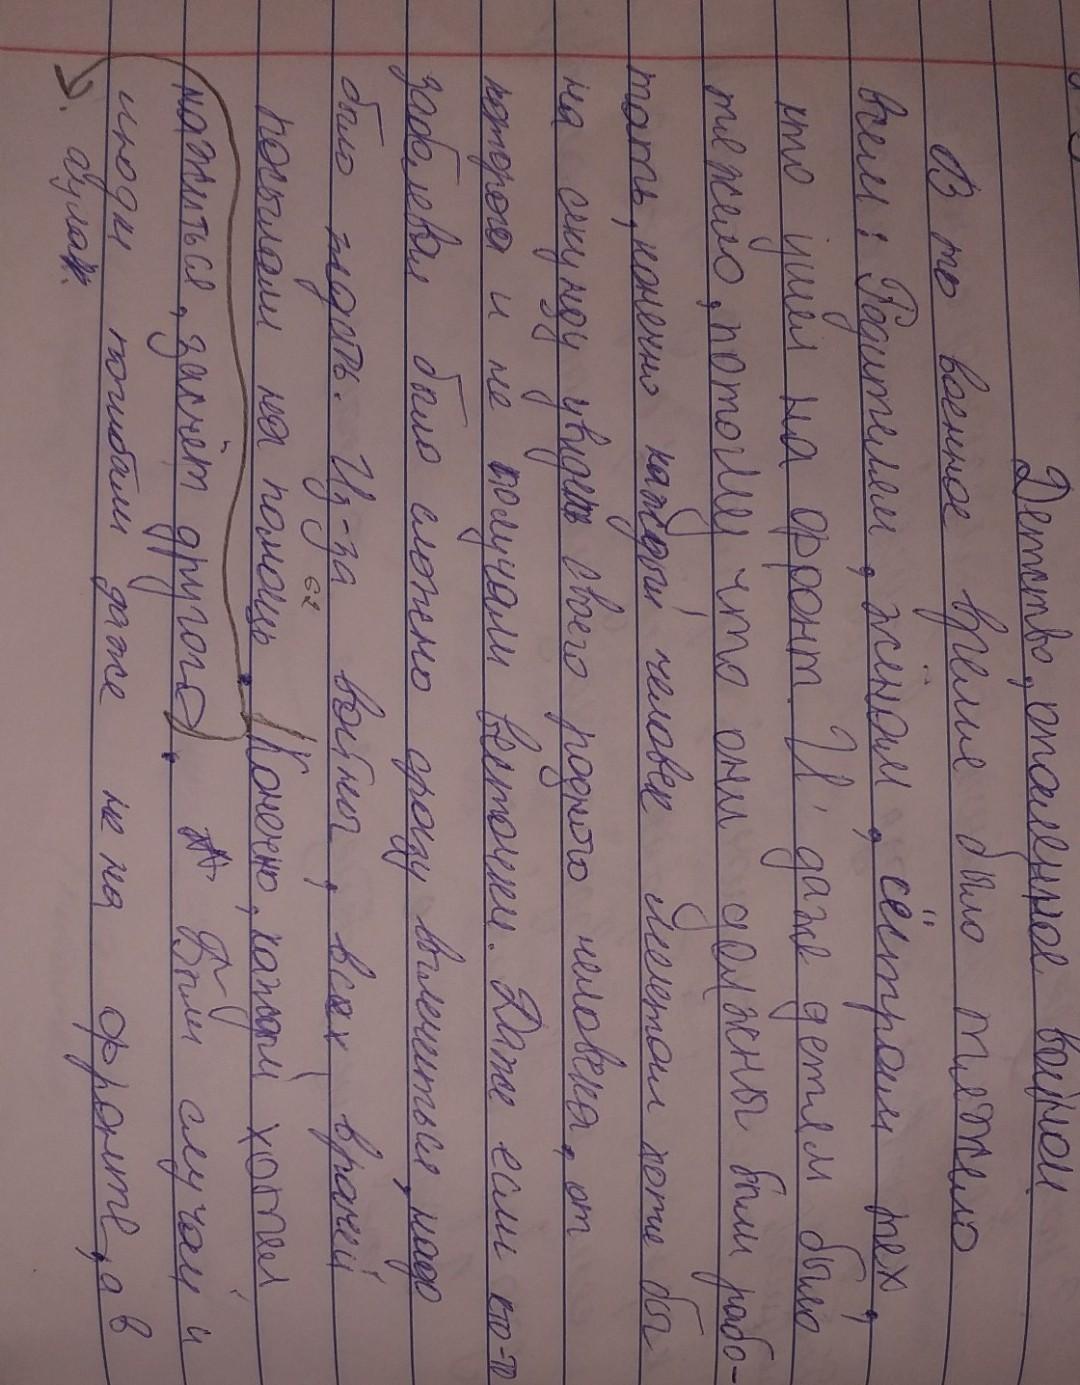 Детство, опаленное войной
В то военное время было тяжело
всем: Родителям, жёнам, сёстрам тех,
кто ушёл на фронт. И даже детям было
тяжело, потому что они должны были рабо-
тать, конечно каждый человек мечтал хотя бы
на секунду увидать своего родного человека, от
которого и не получали весточки. Даже если кто-то
заболевал было сложно сразу вылечиться, надо
было ждать. Из-за войны, всех врачей
посылали на помощь. (Конечно, каждый хотел
нажиться, за счёт другого). А Были случаи и
люди погибали даже не на фронте, а в
аулах.